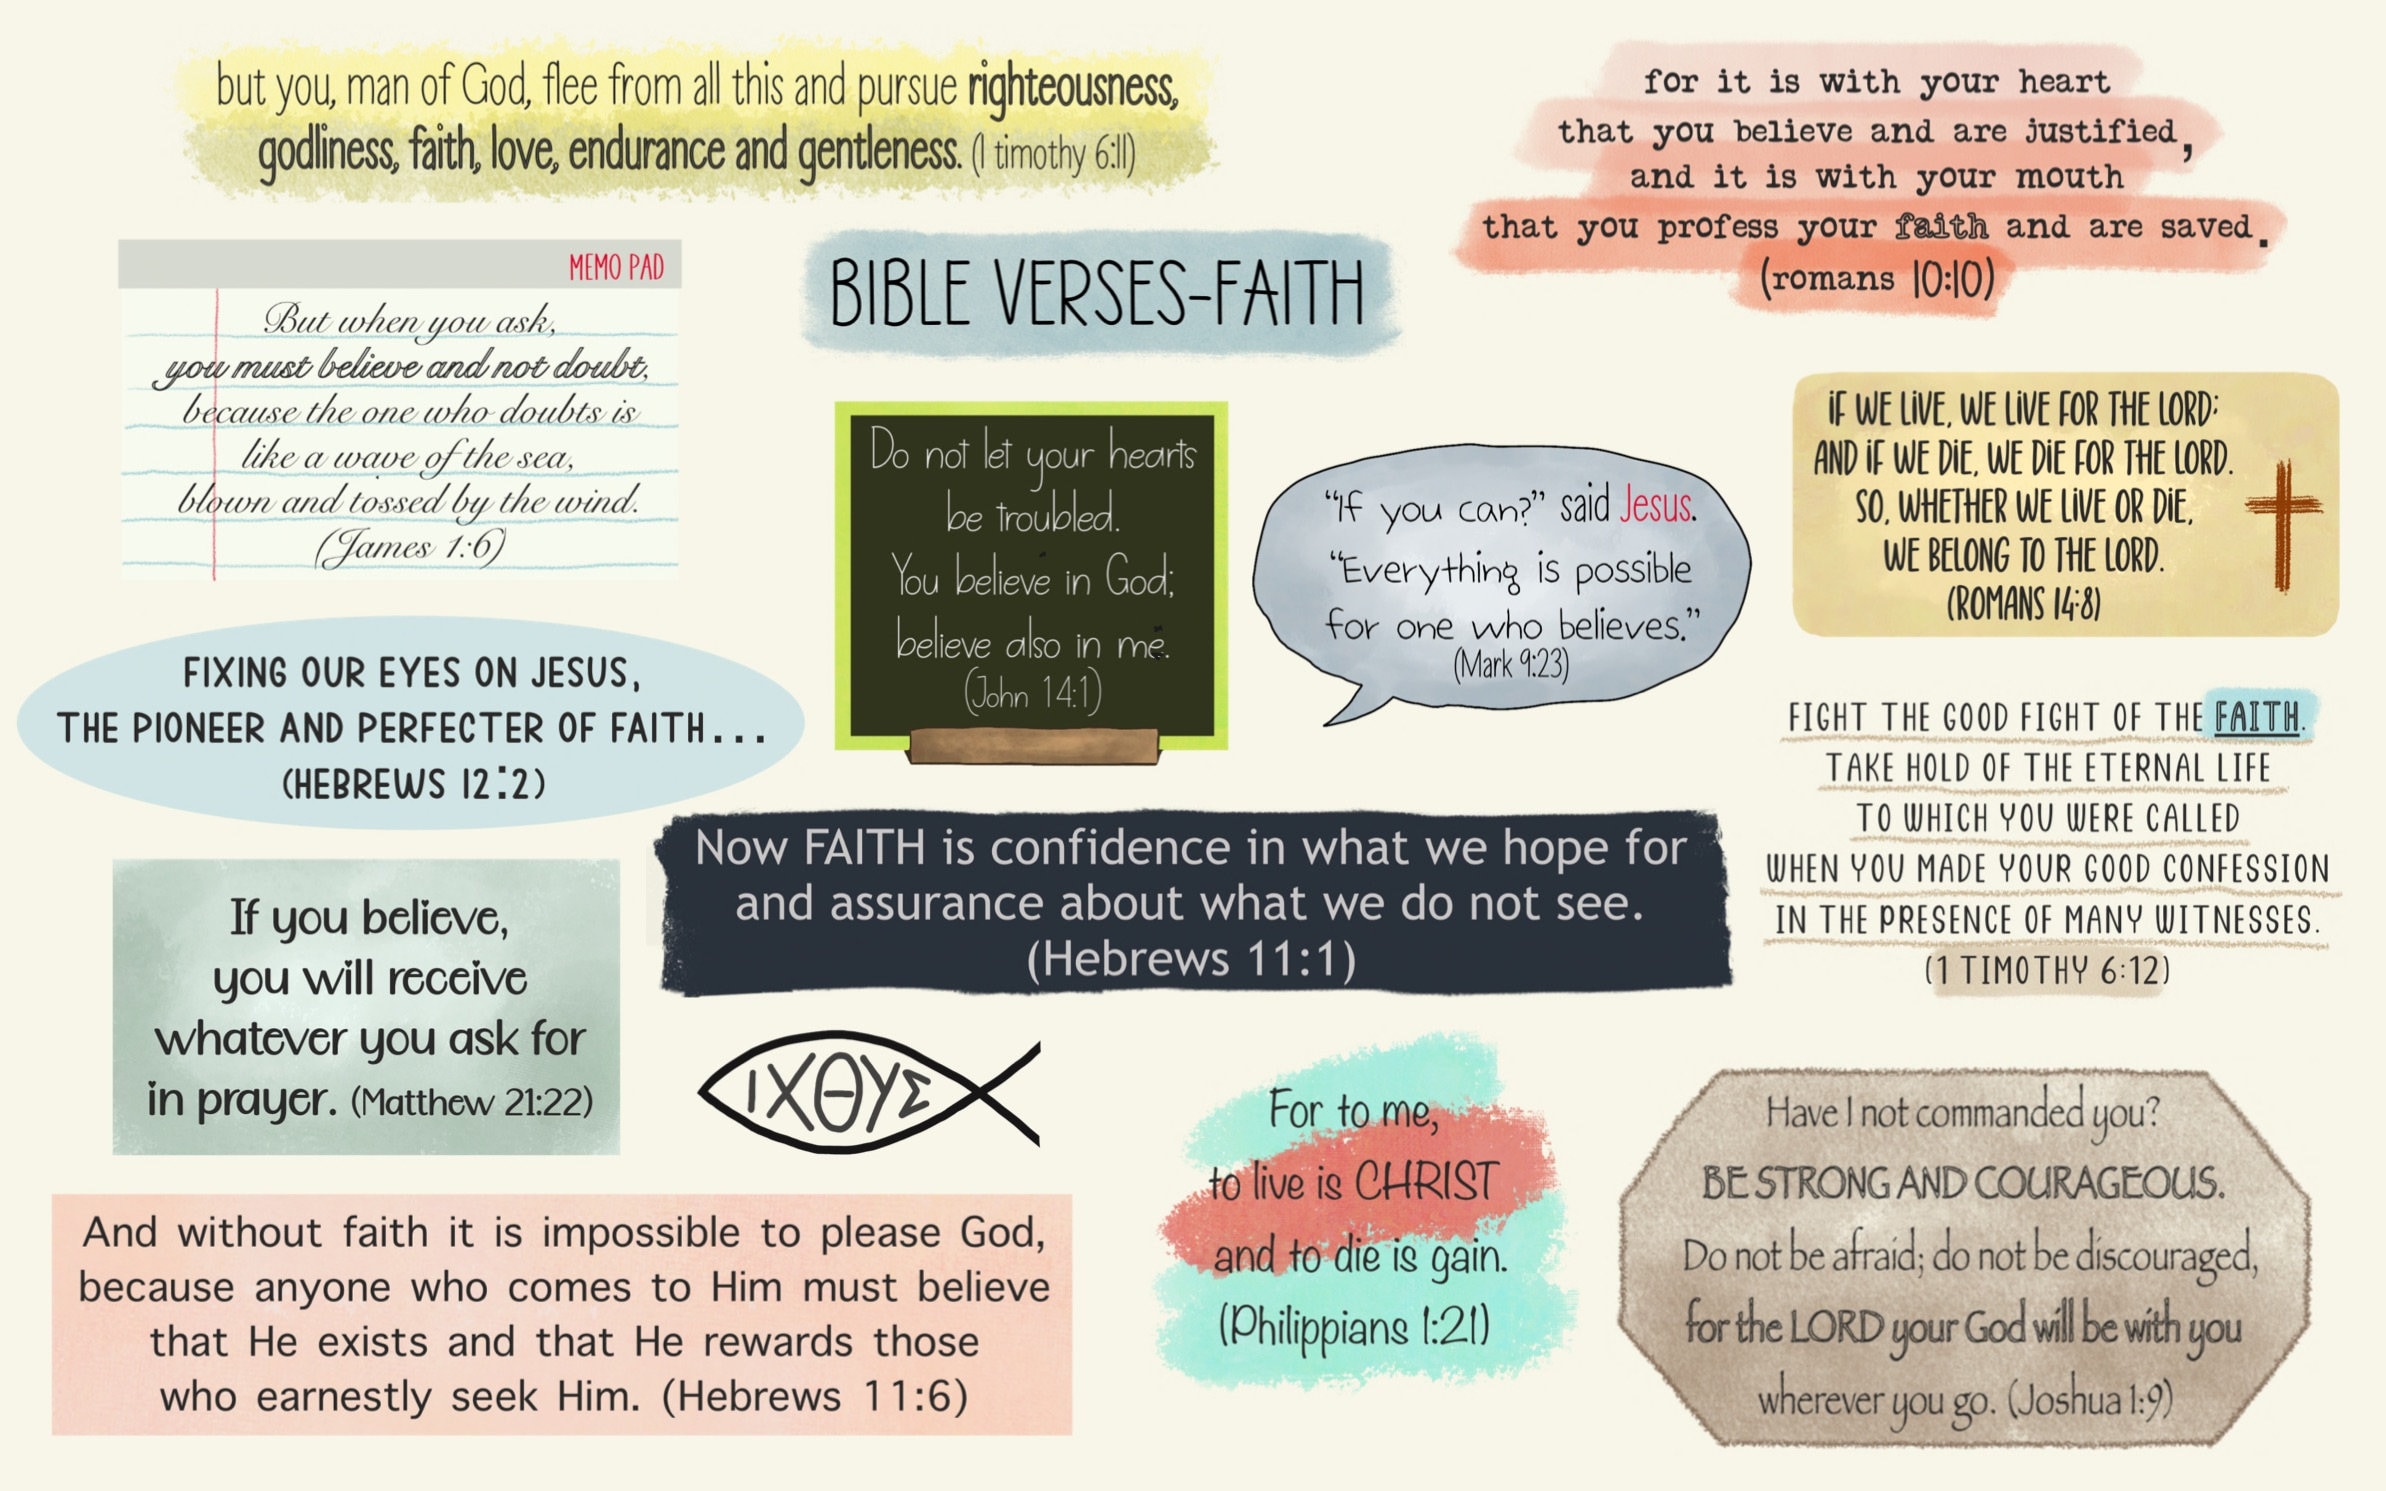 but you, man of God, flee from all this and pursue righteousness,
godliness, faith, love, endurance and gentleness. (1 timothy 6:11)
for it is with your heart
that you believe and are justified,
and it is with your mouth
that you profess your faith and are saved.
(romans 10:10)
BIBLE VERSES-FAITH
MEMO PAD
But when you ask,
you must believe and not doubt,
because the one who doubts is
like a wave of the sea,
blown and tossed by the wind.
(James 1:6)
Do not let your hearts
be troubled.
You believe in God;
believe also in me.
(John 14:1)
“If you can?” said Jesus.
“Everything is possible
for one who believes.”
(Mark 9:23)
IF WE LIVE, WE LIVE FOR THE LORD;
AND IF WE DIE, WE DIE FOR THE LORD.
SO, WHETHER WE LIVE OR DIE,
WE BELONG TO THE LORD.
(ROMANS 14:8)
FIXING OUR EYES ON JESUS,
THE PIONEER AND PERFECTER OF FAITH...
(HEBREWS 12:2)
FIGHT THE GOOD FIGHT OF THE FAITH.
TAKE HOLD OF THE ETERNAL LIFE
TO WHICH YOU WERE CALLED
WHEN YOU MADE YOUR GOOD CONFESSION
IN THE PRESENCE OF MANY WITNESSES.
(1 TIMOTHY 6:12)
Now FAITH is confidence in what we hope for
and assurance about what we do not see.
(Hebrews 11:1)
If you believe,
you will receive
whatever you ask for
in prayer. (Matthew 21:22)
ΙΧΘΥΣ
For to me,
to live is CHRIST
and to die is gain.
(Philippians 1:21)
Have I not commanded you?
BE STRONG AND COURAGEOUS.
Do not be afraid; do not be discouraged,
for the LORD your God will be with you
wherever you go. (Joshua 1:9)
And without faith it is impossible to please God,
because anyone who comes to Him must believe
that He exists and that He rewards those
who earnestly seek Him. (Hebrews 11:6)